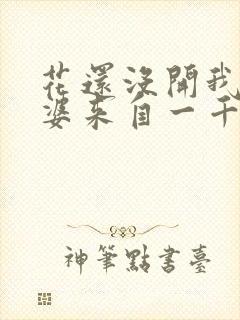 花還沒開我
婆來自一千
神筆點書臺